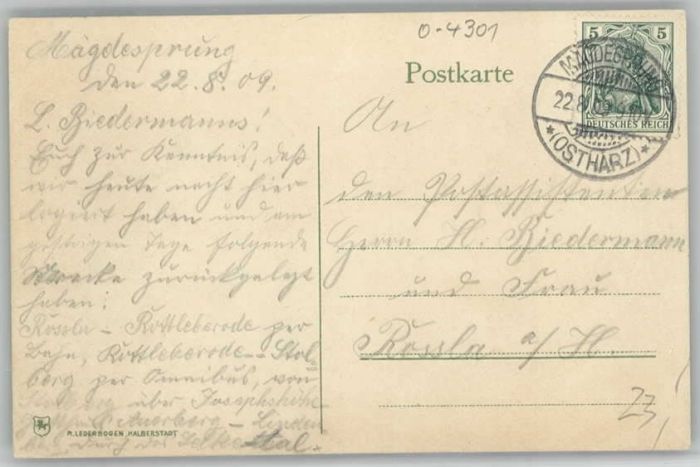 0-4301
Mägdesprung
den 22.8.09.
L. Biedermanns!
Euch zur Kenntnis, daß
wir heute nacht hier
logiert haben und am
gestrigen Tage folgende
Strecke zurückgelegt
haben:
Rossla - Rottleberode per
Bahn, Rottleberode - Stol-
berg per Omnibus, von
über Josephshöhe
Auerberg - Linden
durch das Selketal.
Postkarte
5 5
DEUTSCHES REICH
MÄGDESPRUNG
22.8.09
*(OSTHARZ)*
An
den Postassistenten
Herrn H. Biedermann
und Frau
Rossla a/H.
23
R. LEDERBOGEN, HALBERSTADT